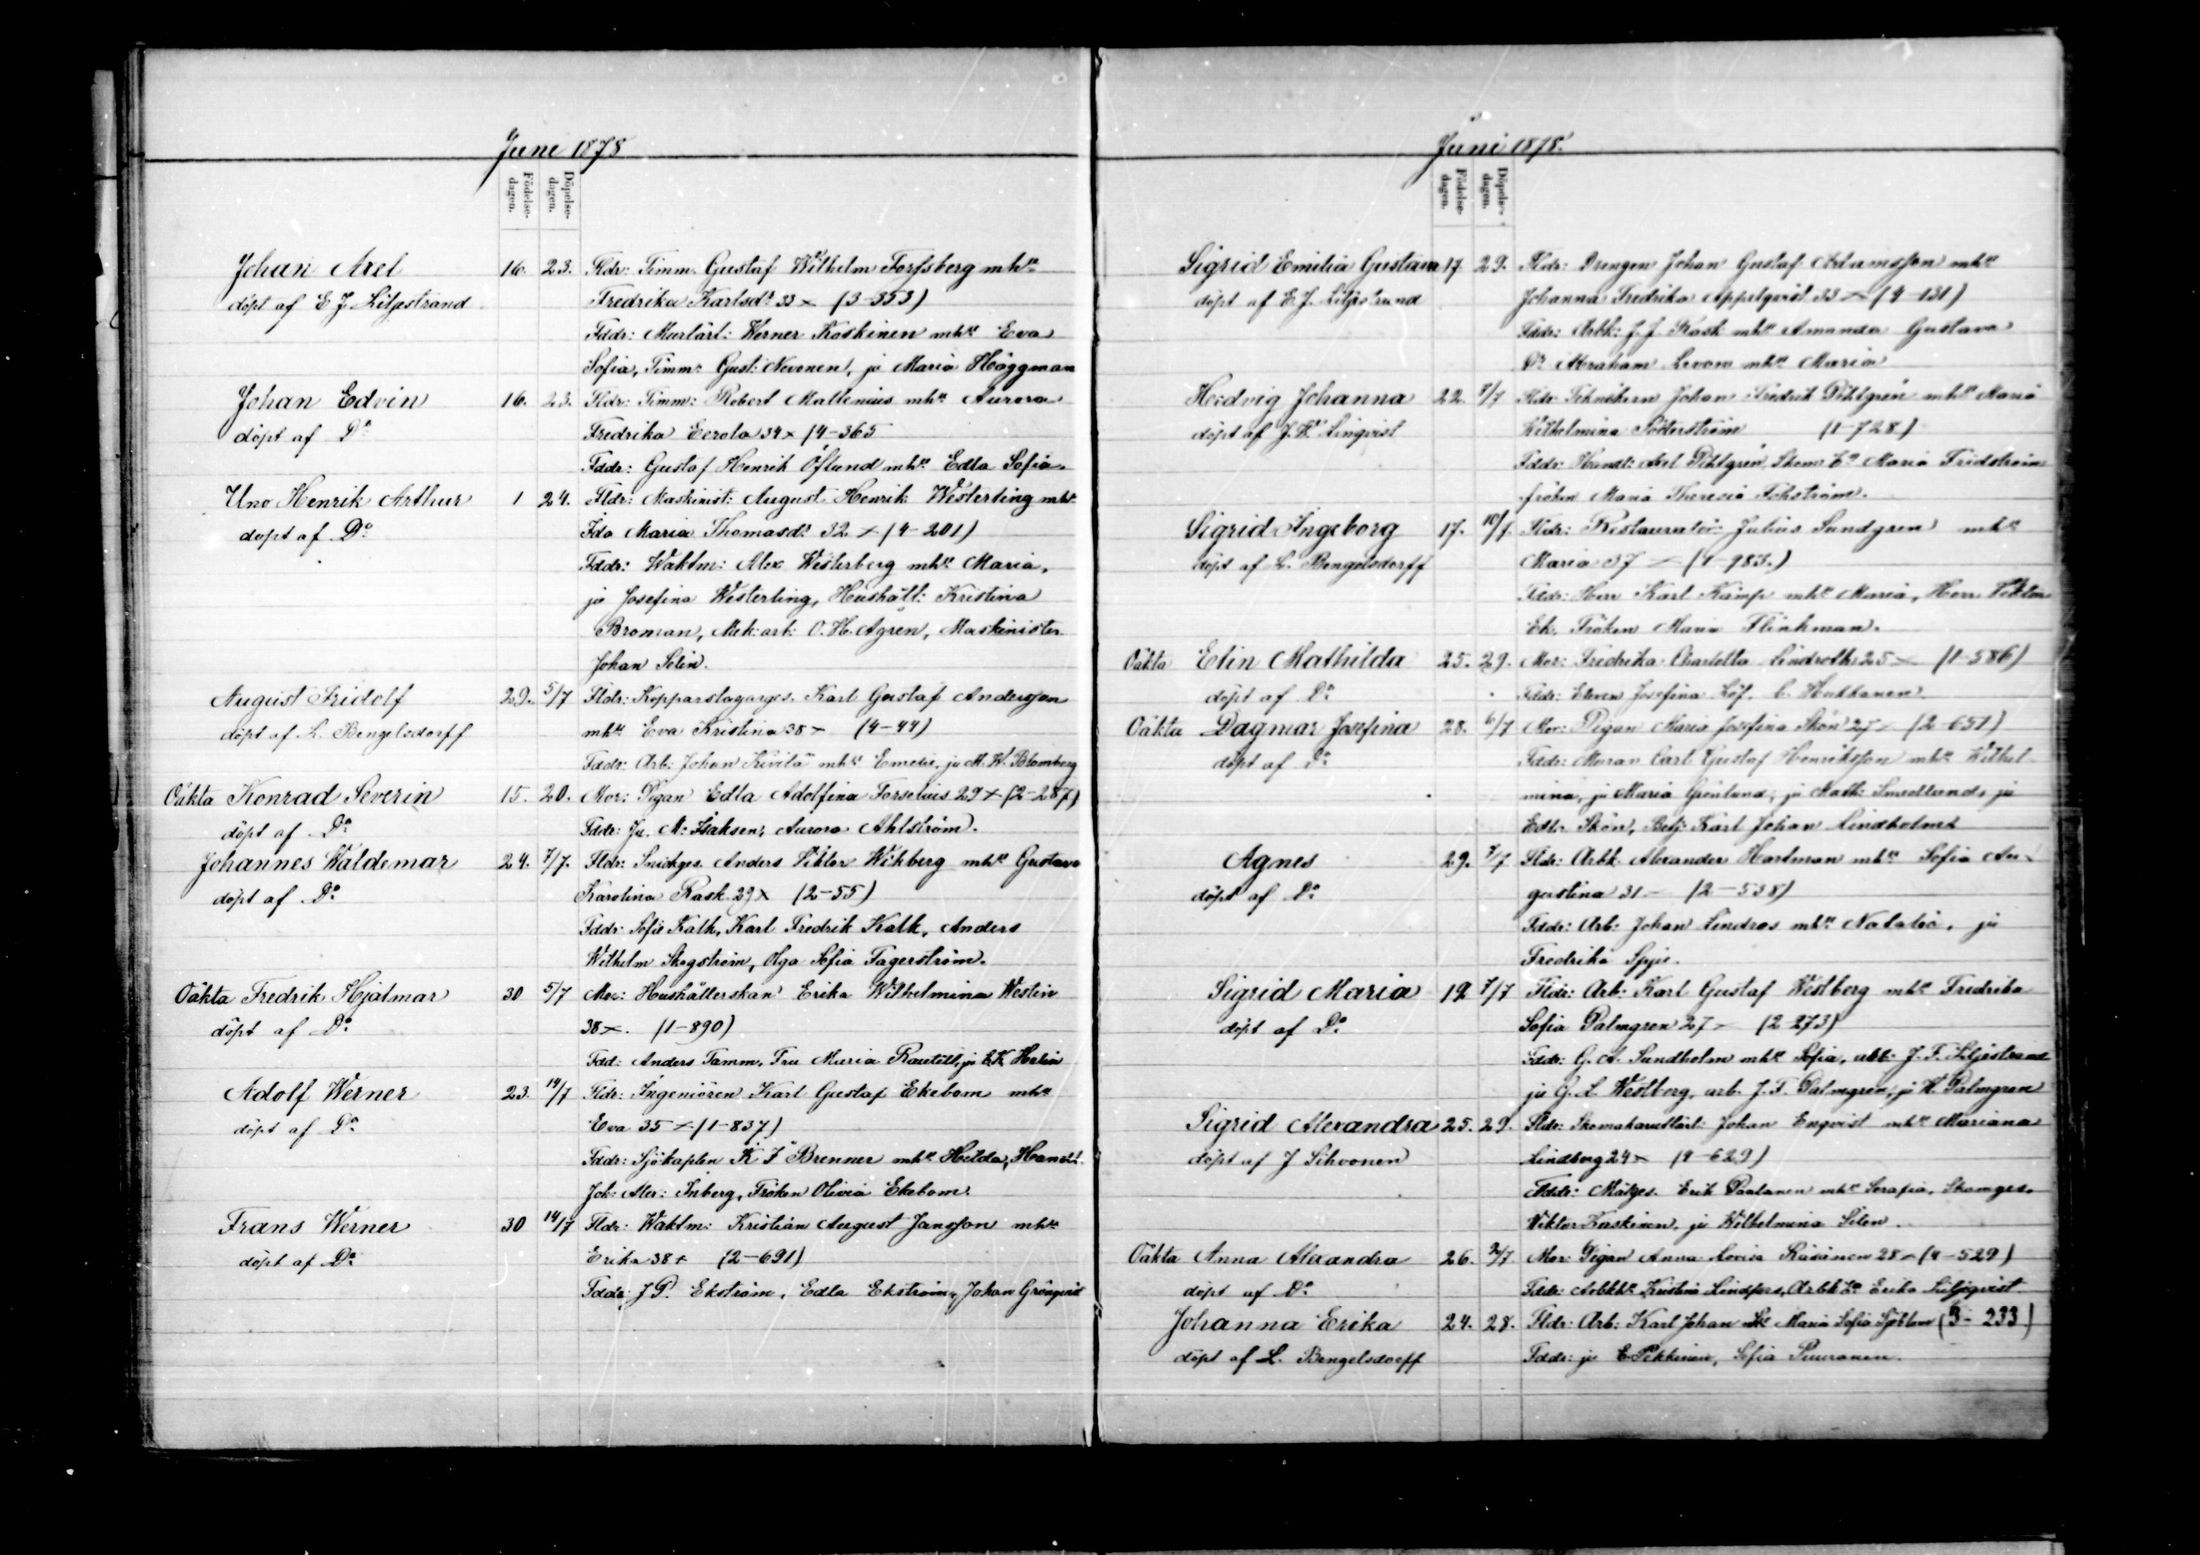 Juni 1878
Födelse-dagen.
Döpelse-dagen.
Johan Axel 16. 23. Fldr: Timm. Gustaf Wilhelm Forssberg mhu
döpt af E J Liljestrand Fredrika Karlsdr 33 × (3-353)
Fddr: Murlärl: Werner Koskinen mhu Eva
Sofia, Timm: Gust: Nevonen, ju Maria Häggman
Johan Edvin 16. 23. Fldr: Timm: Robert Mallenius mhu Aurora
döpt af Do Fredrika Eerola 34 × (4-365
Fddr: Gustaf Henrik Öflund mhu Edla Sofia.
Uno Henrik Arthur 1 24. Fldr: Maskinist: August Henrik Westerling mhu
döpt af Do Ida Maria Thomasdr 32 × (4-201)
Fddr: Waktm: Alex Westerberg mhu Maria,
ju Josefina Westerling, Hushåll: Kristina
Broman, Mek: arb: O. H. Agren, Maskinisten
Johan Selin.
August Fridolf 29. 5/7 Fldr: Kopparslagarges. Karl Gustaf Andersson
döpt af L. Bengelsdorff mhu Eva Kristina 38 × (4-44)
Fddr: Arb: Johan Kivilä mhu Emelie, ju M. W. Blomberg
Oäkta Konrad Severin 15. 20. Mor: Pigan Edla Adolfina Forselius 29 × (2-287)
döpt af Do Fddr: Ju. M: Isaksen, Aurora Ahlström.
Johannes Waldemar 24. 7/7. Fldr: Snickges. Anders Viktor Wikberg mhu Gustava
döpt af Do Karolina Rask 29 × (2-55)
Fddr: Sofie Kath, Karl Fredrik Kath, Anders
Wilhelm Skogström, Olga Sofia Fagerström.
Oäkta Fredrik Hjalmar 30 5/7 Mor: Hushållerskan Erika Wilhelmina Westin
döpt af Do 38 ×. (1-890)
Fdd: Anders Tamm, Fru Maria Rautell, ju
Adolf Werner 23. 14/7 Fldr: Ingeniören Karl Gustaf Ekebom mhu
döpt af Do Eva 35 × (1-837)
Fddr: Sjökapten K F Brenner mhu Hilda, Handl.
Joh: Alex: Inberg, Fröken Olivia Ekebom.
Frans Werner 30 14/7 Fldr: Waktm: Kristian August Jansson mhu
döpt af Do Erika 38 + (2-691)
Fddr: J P. Ekström, Edla Ekström, Johan Grönqvist
Juni 1878.
Födelse-dagen.
Döpelse-dagen.
Sigrid Emilia Gustava 17 29. Fldr: Drengen Johan Gustaf Adamsson mhu
döpt af E. J. Liljestrand Johanna Fredrika Appelqvist 33 × (4-131)
Fddr: Arbk: J. J. Rask mhu Amanda Gustava
Do Abraham mhu Maria
Hedvig Johanna 22. 7/7 Fldr: Johan Fredrik Pihlgrén mhu Maria
döpt af J. W. Linqvist Wilhelmina Söderström (1-728)
Fddr: Handl: Axel Pihlgrén Maria Fridström
fröken Maria Theresia
Sigrid Ingeborg 17. 10/7. Fldr: Restauratör: Julius Sundgren mhu
döpt af L. Bengelsdorff Maria 37 × (1-983.)
Fddr: Herr Karl Kämpe mhu Maria, Herr Viktor
Ek, Fröken Maria Flinkman.
Oäkta Elin Mathilda 25. 29. Mor: Fredrika Charlotta Lindroth 25 × (1-586)
döpt af Do Fddr: Eleven Josefina Löf. C. Hukkanen.
Oäkta Dagmar Josefina 28. 6/7 Mor: Pigan Maria Josefina Skön 27 × (2-651)
döpt af Do Fddr: Muraren Carl Gustaf Henriksson mhu Wilhel-
mina, ju Maria Grönlund, ju Math: Smedlund, ju
Edla Skön, Betj: Karl Johan Lindholm
Agnes 29. 7/7 Fldr: Arbk Alexander Hartman mhu Sofia Au-
döpt af Do gustina 31 - (2-538)
Fddr: Arb: Johan Lindros mhu Natalia, ju
Fredrika
Sigrid Maria 19 7/7 Fldr: Arb: Karl Gustaf Westberg mhu Fredrika
döpt af Do Sofia Palmgren 27 × (2-273)
Fddr: G. A. Sundholm mhu Sofia, arb: J. F. Liljestrand
ju G. L Westberg, arb. J. F. Palmgren, ju W. Palmgren
Sigrid Alexandra 25. 29. Fldr: Skomakarelärl: Johan Enqvist mhu Mariana
döpt af J Sihvonen Lindberg 24 × (4-629)
Fddr: Erik Paalanen mhu Serafia, Skomges.
Wiktor Koskinen, ju Wilhelmina Silen.
Oäkta Anna Alexandra 26. 2/7 Mor Pigan Anna Lovisa Räsänen 28 × (4-529)
döpt af Do Fddr: Kristina Lindfors, Arbk Erika
Johanna Erika 24. 28. Fldr: Arb: Karl Johan Maria Sofia Sjöblom (3-233)
döpt af L. Bengelsdorff Fddr: ju E Pekkinen, Sofia Puuronen.